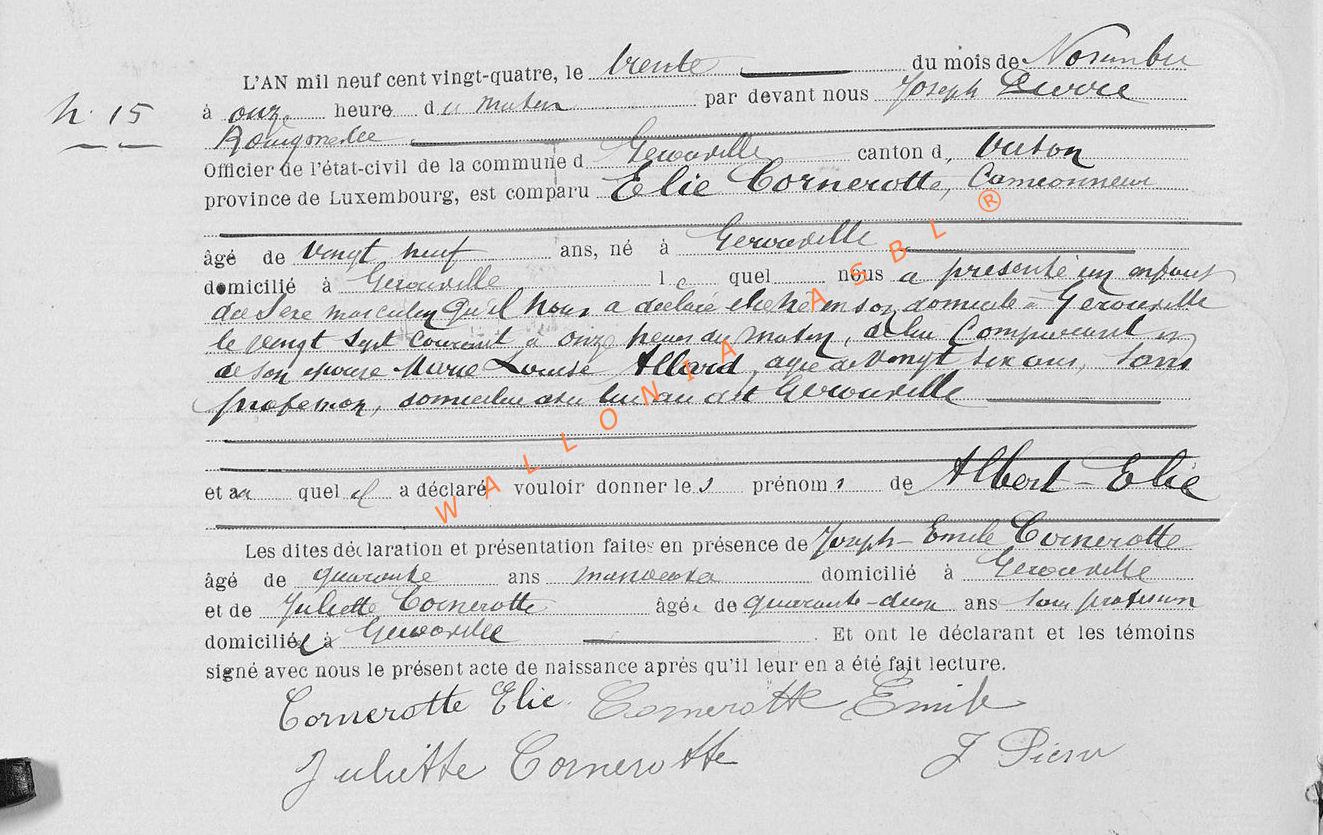 L'AN mil neuf cent vingt-quatre, le trente du mois de Novembre
N. 15
à onze heure du matin par devant nous Joseph Pierre
Officier de l'état-civil de la commune d Gérouville canton d, Virton
province de Luxembourg, est comparu Elie Cornerotte, Camionneur
âgé de vingt neuf ans, né à Gérouville
domicilié à Gérouville le quel nous a présenté un enfant
du sexe masculin qu'il nous a déclaré être né en son domicile à Gérouville
le vingt sept courant à onze heures du matin, de lui Comparant et
de son épouse Marie Louise Allard, agée de vingt six ans, sans
profession, domiciliée avec lui au dit Gérouville
et au quel il a déclaré vouloir donner les prénoms de Albert-Elie
Les dites déclaration et présentation faites en présence de Joseph-Emile Cornerotte
âgé de quarante ans domicilié à Gérouville
et de Juliette Cornerotte âgée de quarante-deux ans sans profession
domiciliée à Gérouville . Et ont le déclarant et les témoins
signé avec nous le présent acte de naissance après qu'il leur en a été fait lecture.
Cornerotte Elie. Cornerotte Emile
Juliette Cornerotte J Pierre
WALLONIA ASBL ®